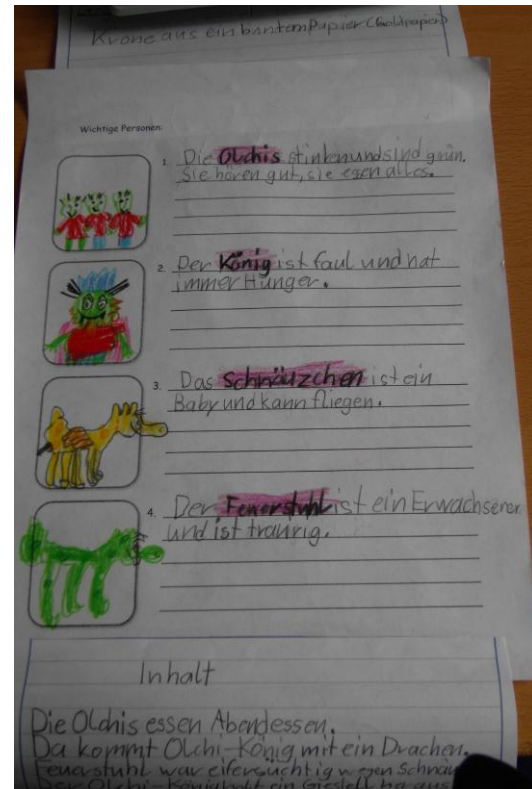 Krone aus ein buntem Papier (Goldpapier)
Wichtige Personen:
1. Die Olchis stinken und sind grün.
Sie hören gut, sie esen alles.
2. Der König ist faul und hat
immer Hunger.
3. Das Schnäuzchen ist ein
Baby und kann fliegen.
4. Der Feuerstuhl ist ein Erwachsener
und ist traurig.
Inhalt
Die Olchis essen Abendessen.
Da kommt Olchi-König mit ein Drachen.
Feuerstuhl war eifersüchtig wegen
Der Olchi-König holt ein